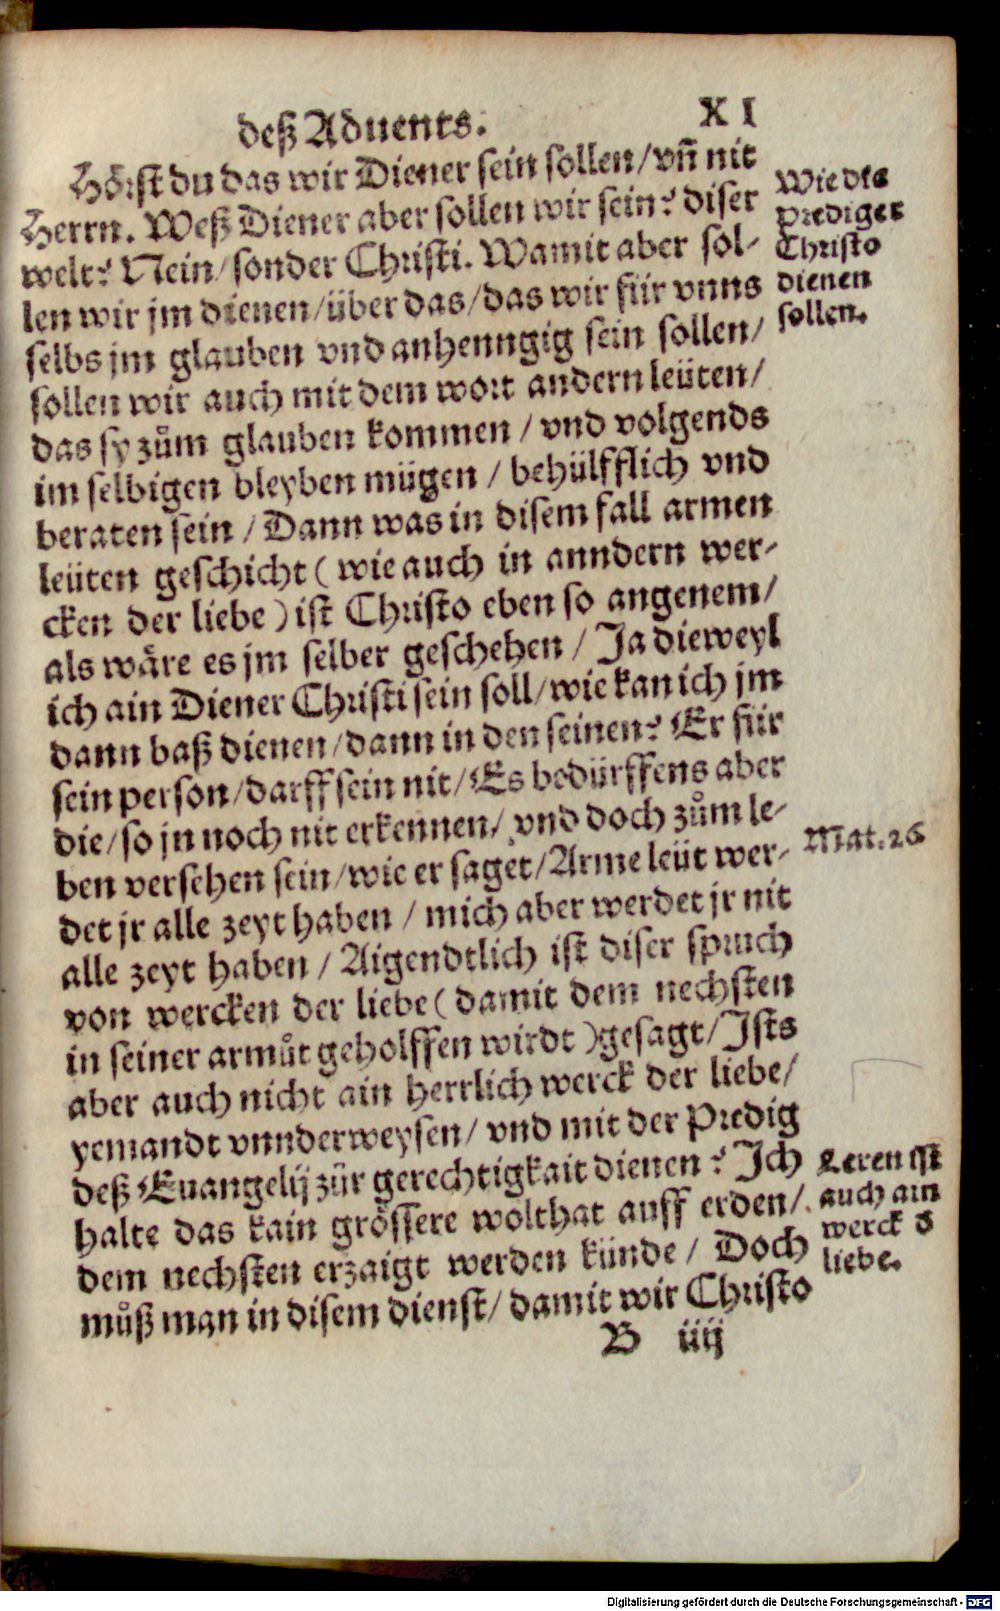 deß Aduents. XI
Hörst du das wir Diener sein sollen/ vñ nit
Herrn. Weß Diener aber sollen wir sein? diser
welt? Nein/ sonder Christi. Wamit aber sol-
len wir jm dienen/ über das/ das wir für vnns
selbs jm glauben vnd anhenngig sein sollen/
sollen wir auch mit dem wort andern leüten/
das sy zům glauben kommen/ vnd volgends
im selbigen bleyben mügen/ behülfflich vnd
beraten sein/ Dann was in disem fall armen
leüten geschicht (wie auch in anndern wer-
cken der liebe) ist Christo eben so angenem/
als wåre es jm selber geschehen/ Ja dieweyl
ich ain Diener Christi sein soll/ wie kan ich jm
dann baß dienen/ dann in den seinen? Er für
sein person/ darff sein nit/ Es bedürffens aber
die/ so jn noch nit erkennen/ vnd doch zům le-
ben versehen sein/ wie er saget/ Arme leüt wer-
det jr alle zeyt haben/ mich aber werdet jr nit
alle zeyt haben/ Aigendtlich ist diser spruch
von wercken der liebe (damit dem nechsten
in seiner armůt geholffen wirdt) gesagt/ Ists
aber auch nicht ain herrlich werck der liebe/
yemandt vnnderweysen/ vnd mit der Predig
deß Euangelij zůr gerechtigkait dienen? Ich
halte das kain grössere wolthat auff erden/
dem nechsten erzaigt werden künde/ Doch
můß man in disem dienst/ damit wir Christo
B iiij
Wie die
prediger
Christo
dienen
sollen.
Mat. 26
Leren ist
auch ain
werck d̕
liebe.
Digitalisierung gefördert durch die Deutsche Forschungsgemeinschaft - DFG